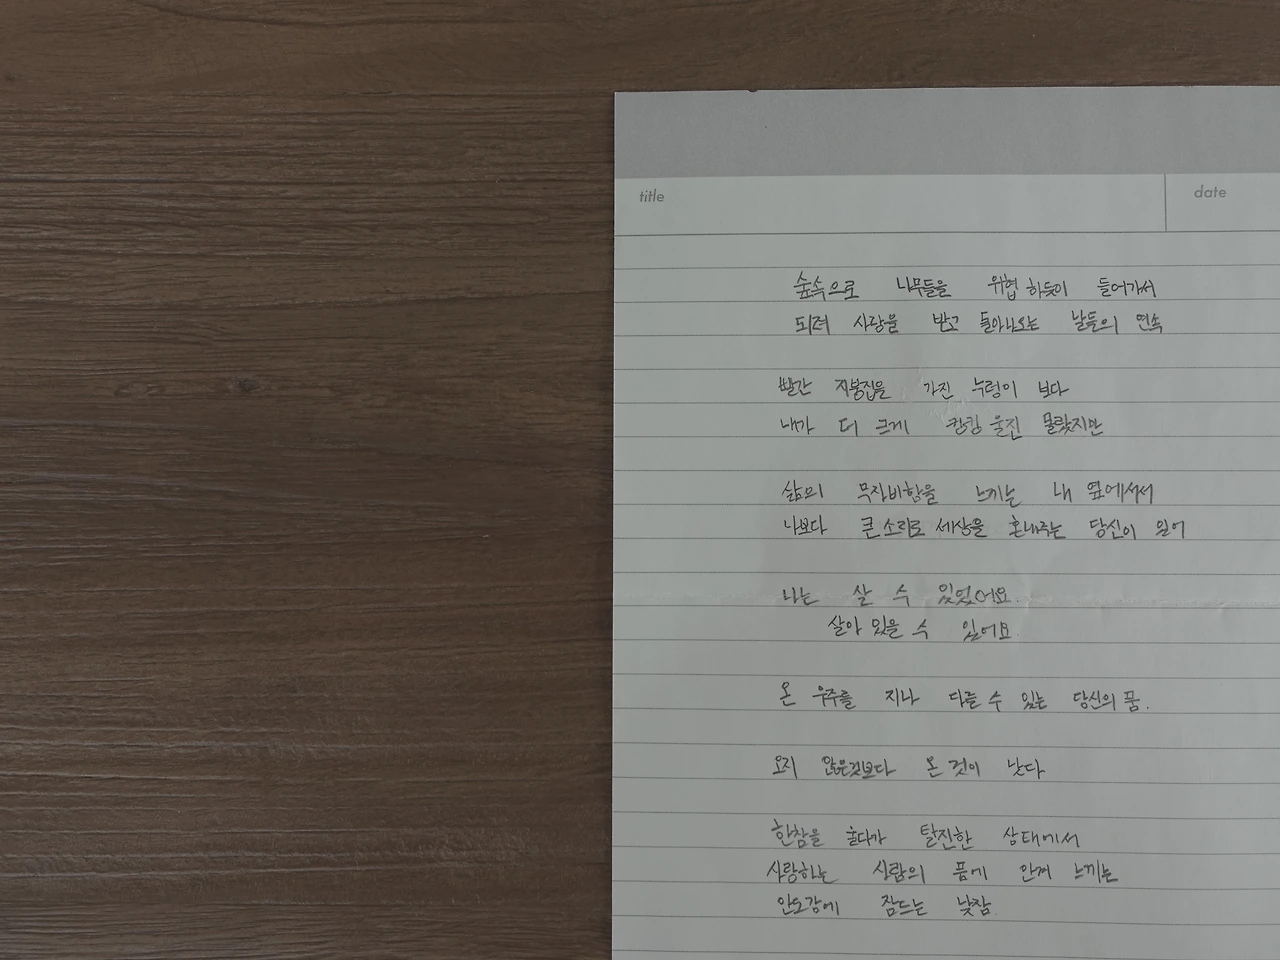 title
date
숲속으로 나무들을 위협 하듯이 들어가서
되려 사랑을 받고 돌아나오는 날들의 연속
빨간 지붕집을 가진 누렁이 보다
내가 더 크게 컹컹 울진 몰랐지만
삶의 무자비함을 느끼는 내 옆에서서
나보다 큰 소리로 세상을 혼내주는 당신이 있어
나는 살 수 있었어요.
살아 있을 수 있어요.
온 우주를 지나 다를 수 있는 당신의 품.
오지 않은것보다 온 것이 낫다
한참을 울다가 탈진한 상태에서
사랑하는 사람의 품에 안겨 느끼는
안도감에 잠드는 낮잠.